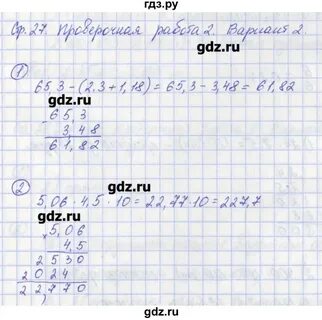 гдз.ру
Ср. 27. Проверочная работа 2. Вариант 2.
gdz.ru
1
65,3 - (2,3 + 1,18) = 65,3 - 3,48 = 61,82
gdz.ru
- 65,3
3,48
61,82
gdz.ru
2
5,06 · 4,5 · 10 = 22,77 · 10 = 227,7
gdz.ru
× 5,06
4,5
2 530
2 024
22770
gdz.ru